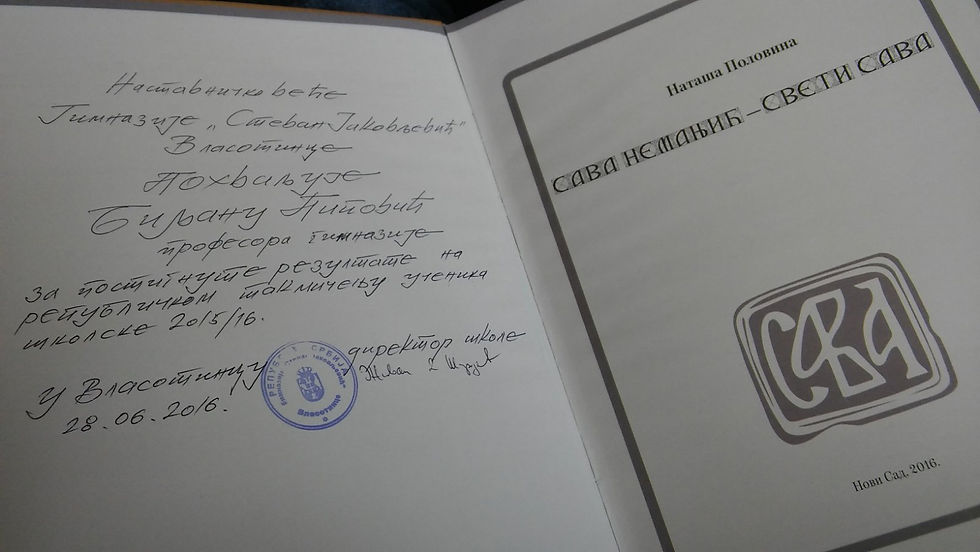 Наставничко веће
Гимназије „Стеван Јаковљевић“
Власотинце
Похваљује
Биљану Пиповић
професора гимназије
за постигнуте резултате на
републичком такмичењу ученика
школске 2015/16.
У Власотинцу
28.06.2016.
директор школе
РЕПУБЛИКА СРБИЈА
Власотинце
Наташа Половина
САВА НЕМАЊИЋ – СВЕТИ САВА
САВА
Нови Сад, 2016.